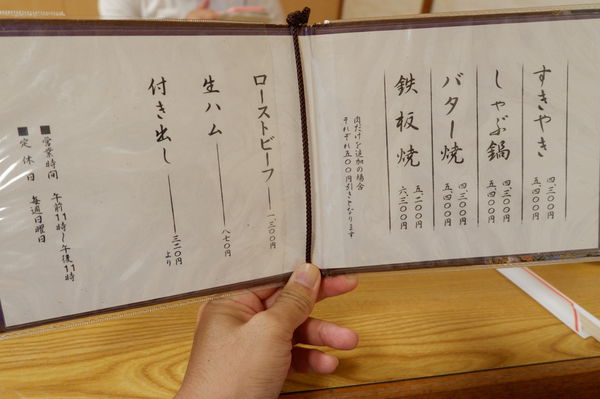 すきやき 四、三〇〇円
五、四〇〇円
しゃぶ鍋 四、三〇〇円
五、四〇〇円
バター焼 四、三〇〇円
五、四〇〇円
鉄板焼 五、二〇〇円
六、三〇〇円
肉だけを追加の場合
それぞれ五〇〇円引きになります
ローストビーフ 一、三〇〇円
生ハム 八七〇円
付き出し 三二〇円より
■営業時間 午前11時〜午後11時
■定休日 毎週日曜日